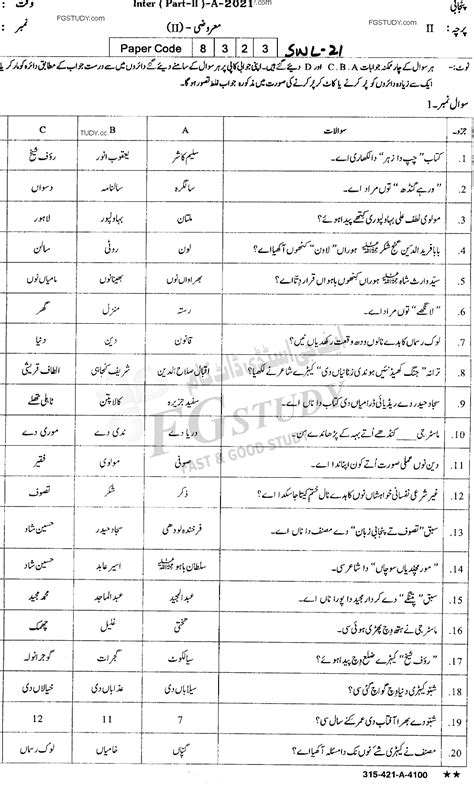 وقت : Inter ( Part-II )-A-2021 پنجابی
FGSTUDY.com
نمبر : معروضی - (II) پرچہ : II
FGSTUDY.com
Paper Code 8 3 2 3 SWL-21
نوٹ:- ہر سوال کے چار ممکنہ جوابات C، B، A اور D دیئے گئے ہیں۔ اپنی جوابی کاپی پر ہر سوال کے سامنے دیئے گئے دائروں میں سے درست جواب کے مطابق دائرہ کو مار کر یا
ایک سے زیادہ دائروں کو پُر کرنے یا کاٹ کر پُر کرنے کی صورت میں مذکورہ جواب غلط تصور ہو گا۔
سوال نمبر-1
جزو۔ سوالات A B C
STUDY.com
1. کتاب "چپ دا زہر" دا لکھاری اے۔ سلیم کاشر یعقوب انور رؤف شیخ
2. "ورہے گنڈھ" توں مراد اے۔ سانگرہ سالنامہ دسواں
3. مولوی لطف علی بہاولپوری کتھے پیدا ہوئے؟ ملتان بہاولپور لاہور
4. بابا فرید الدین گنج شکرؒ ہوراں "لاون" کنھوں آکھیا اے؟ لون روٹی سالن
5. سیّد وارث شاہؒ ہوراں کنھوں باہواں قرار دِتّا اے؟ بھراواں نوں بھیناں نوں مامیاں نوں
6. "لانگھے" توں مراد اے۔ رستہ منزل گھر
7. لوک رسماں کاہدے نالوں ودھ وقعت رکھدیاں نیں؟ قانون دین دنیا
8. ترانہ "جنگ کھیڈ نئیں ہوندی زنانیاں دی" کیہڑے شاعر نے لکھیا؟ اقبال صلاح الدین شریف کنجاہی الطاف قریشی
9. سجاد حیدر دے ریڈیائی ڈرامیاں دی کتاب داناں اے۔ سفید جزیرہ کالا پتن
10. ماسٹر جی ____ کنڈھے اُتے بہہ کے پڑھاندے ہن۔ دریا دے ندی دے موری دے
11. دین نوں عملی صورت اُتے کون اپناندا اے۔ صوفی مولوی فقیر
12. غیر شرعی نفسانی خواہشاں نوں کاہدے نال ختم کیتا جاسکدا اے؟ ذکر شکر تصوف
13. سبق "تصوف تے پنجابی زبان" دے مصنف دا ناں اے۔ فرخندہ لودھی سجاد حیدر حسین شاد
14. "مور مچلدیاں سوچاں" دا شاعر سی۔ سلطان باہوؒ اسیر عابد حسین شاد
15. سبق "پنگے" دے کردار مجید دا پورا ناں اے۔ عبدالمجید عبدالماجد محمد مجید
16. ماسٹر جی نے ہتھ وچ پھڑی ہوئی سی۔ تختی غلیل چھمک
17. "رؤف شیخ" کیہڑے ضلع وچ پیدا ہوئے؟ سیالکوٹ گجرات گوجرانوالہ
18. شبّو کیہڑی دنیا وچ گواچ گئی سی؟ سیلاباں دی خیالاں دی
19. شبّو دے بھرا آفتاب دی عمر کنے سال سی؟ 7 11 12
20. مصنف نے کیہڑی شے نوں تک دا مسئلہ آکھیا اے؟ خامیاں لوک رسماں
FGSTUDY
FAST & GOOD STUDY
315-421-A-4100 ★★